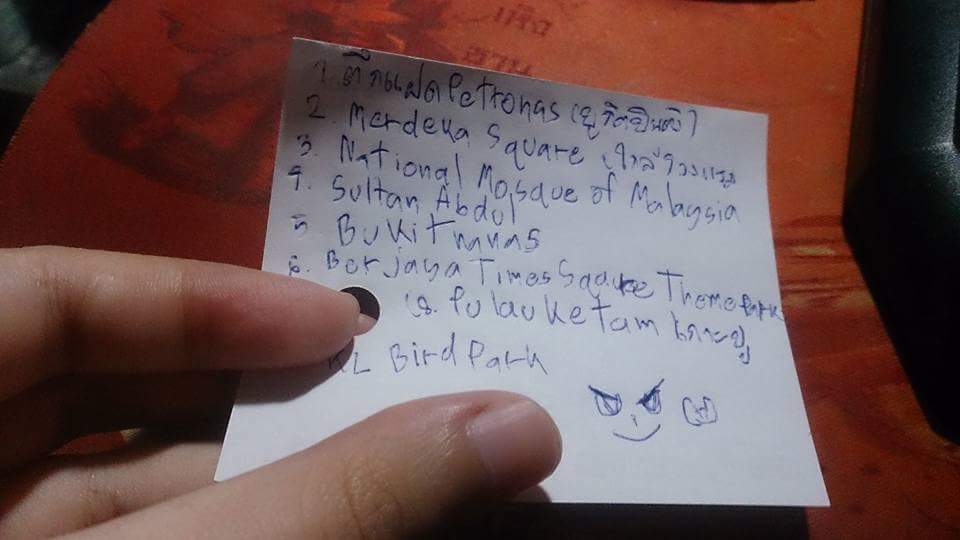 เชิง
ฐาน
1. ตึกแฝด Petronas
2. Merdeka Square ใกล้
3. National Mosque of Malaysia
4. Sultan Abdul
5 Bukit nanas
6. Berjaya Times Square Theme Park
8. Pulau Ketam
KL Bird Park